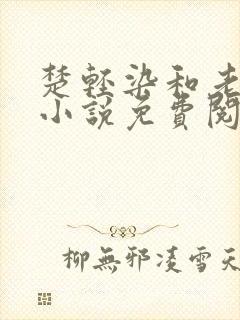 楚輕染和老
小說免費閱
柳無邪凌雪天